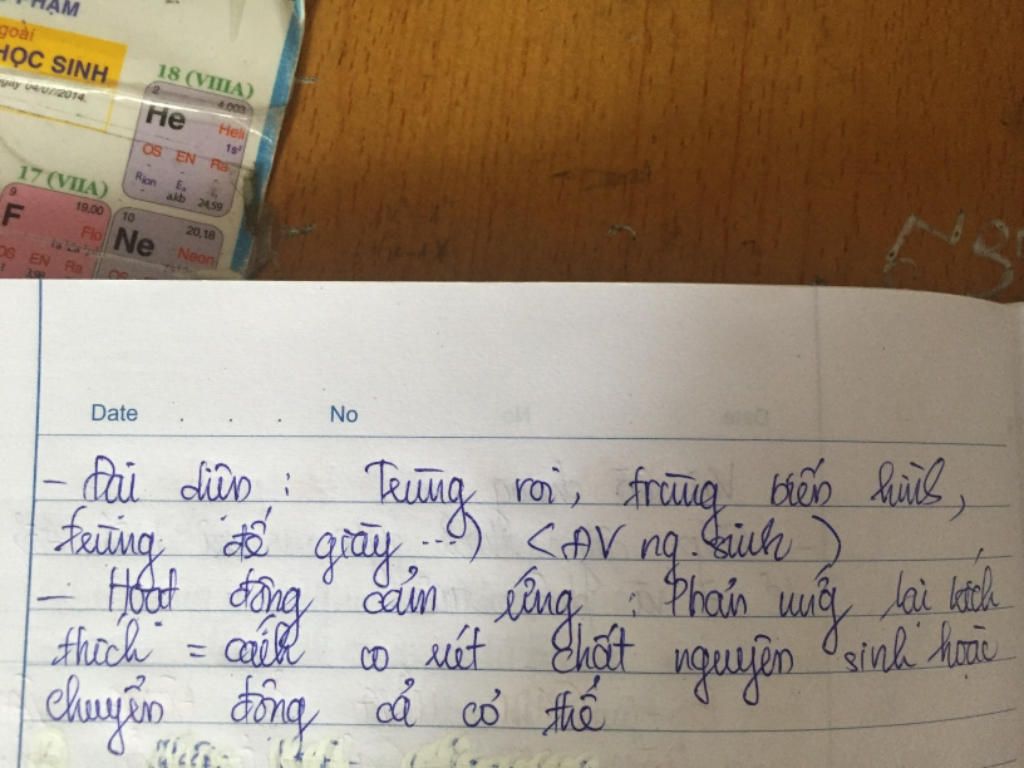 PHẠM
goài
HỌC SINH
ngày 04/07/2014.
18 (VIIIA)
2 4.003
He Heli
1s²
OS EN Ra
- - -
Rion Eₐ I₁
a.kb 24,59
17 (VIIA)
9 19,00
F Flo
OS EN Ra
10 20,18
Ne Neon
Date . . . No
- Đại diện : Trùng roi, trùng biến hình,
trùng đế giày ...) (ĐV ng. sinh)
- Hoạt động cảm ứng : Phản ứng lại kích
thích = cách co rút chất nguyên sinh hoặc
chuyển động cả cơ thể